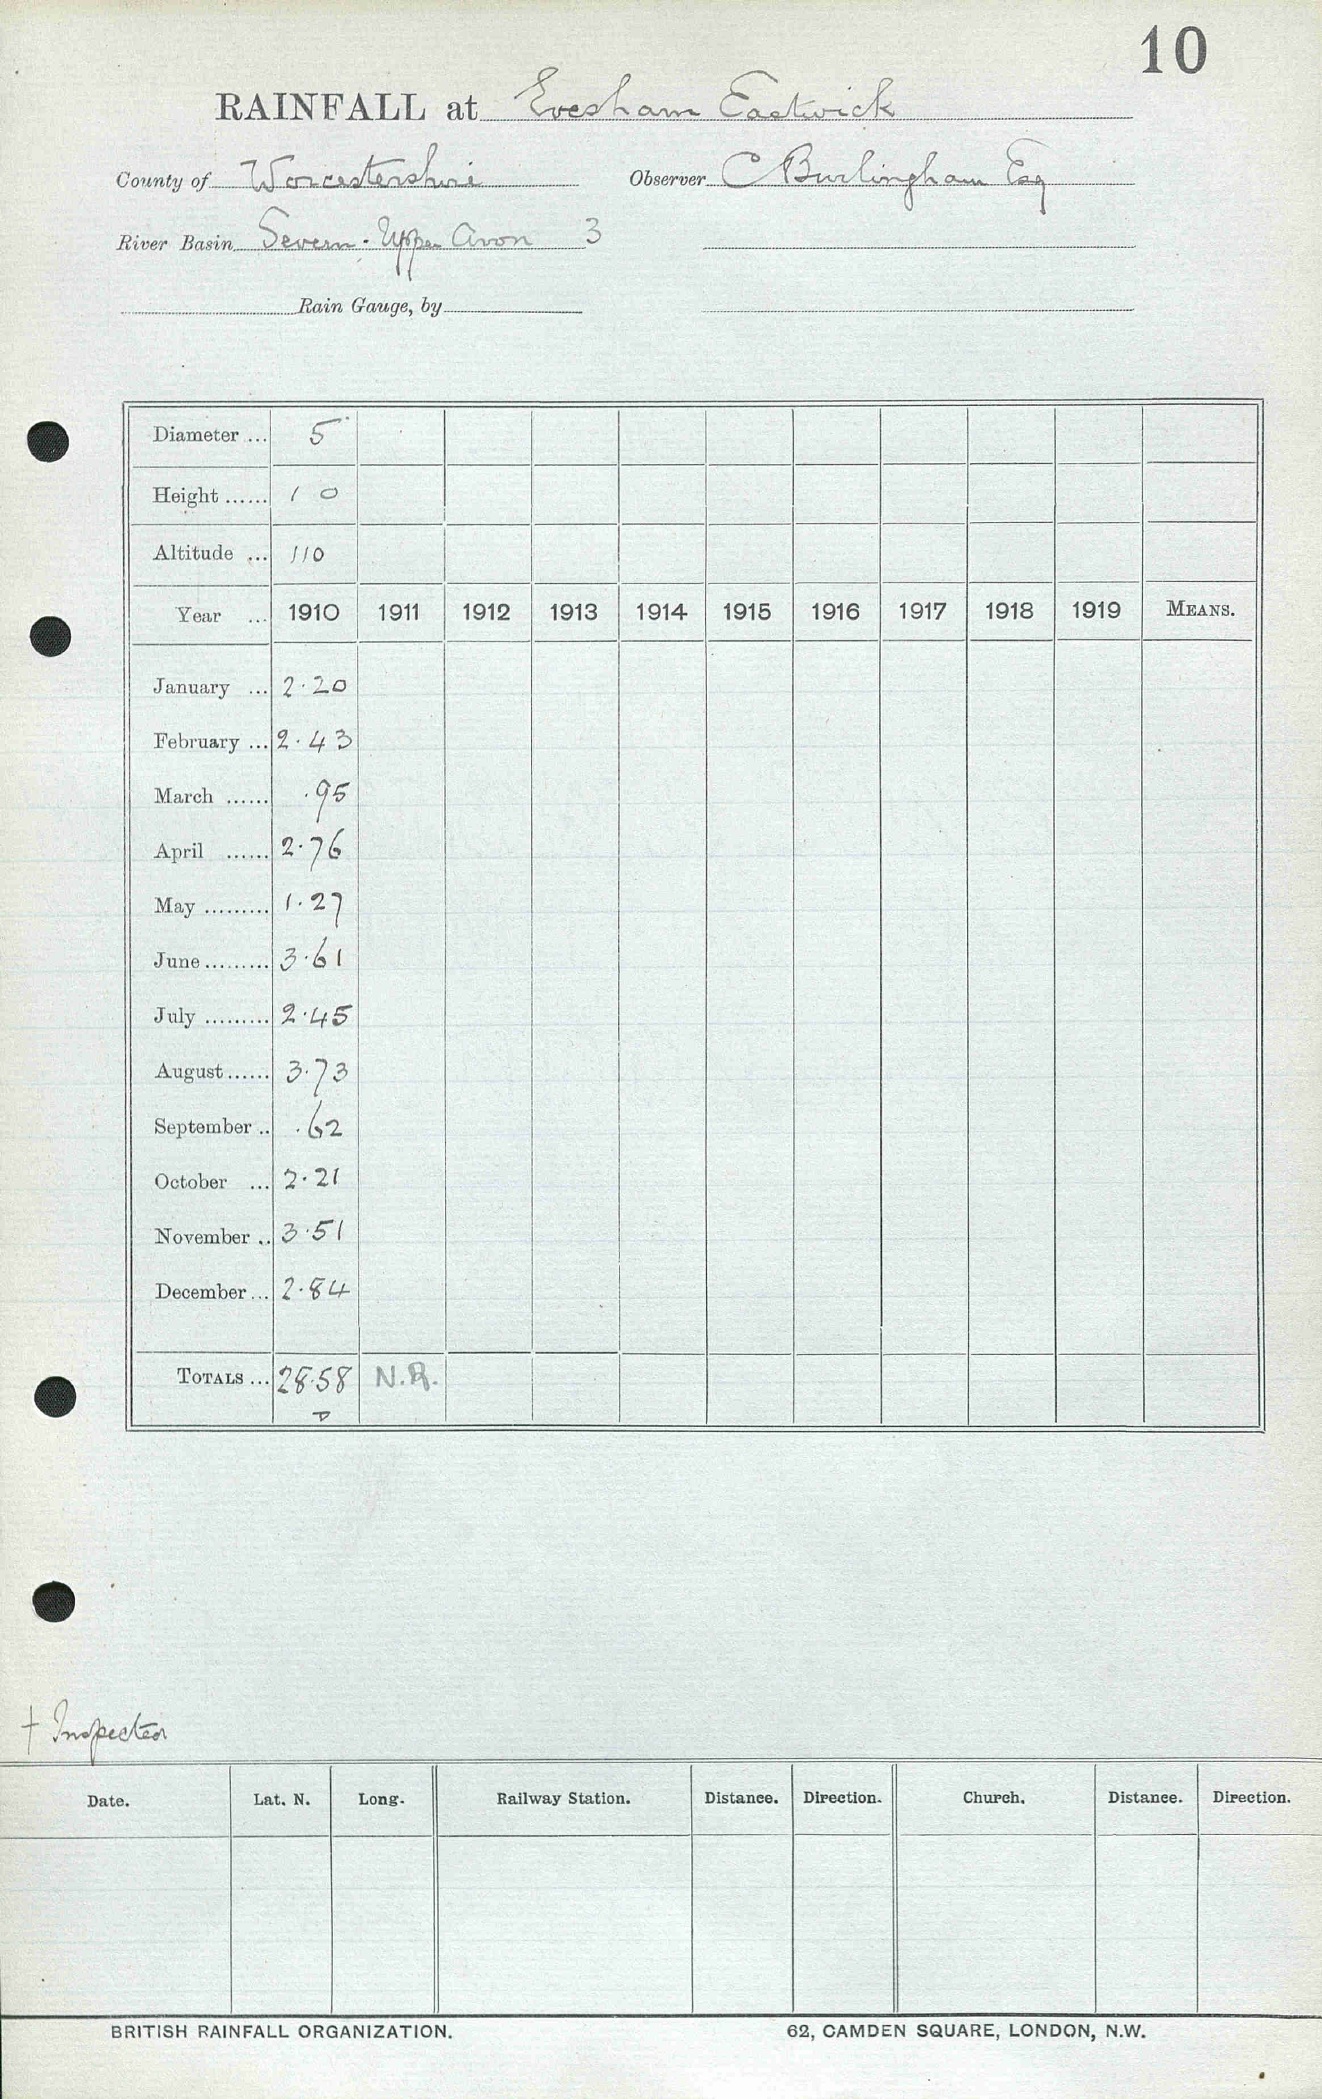 10
RAINFALL at Evesham Eastwick
County of Worcestershire Observer C Burlingham Esq
River Basin Severn - Upper Avon 3
Rain Gauge, by
Diameter ... 5
Height ...... 1 0
Altitude ... 110
Year ... 1910 1911 1912 1913 1914 1915 1916 1917 1918 1919 MEANS.
January ... 2.20
February ... 2.43
March ...... .95
April ...... 2.76
May ......... 1.27
June ......... 3.61
July ......... 2.45
August ...... 3.73
September .. .62
October ... 2.21
November .. 3.51
December ... 2.84
TOTALS ... 28.58 N.R.
† Inspected
Date. Lat. N. Long. Railway Station. Distance. Direction. Church. Distance. Direction.
BRITISH RAINFALL ORGANIZATION. 62, CAMDEN SQUARE, LONDON, N.W.